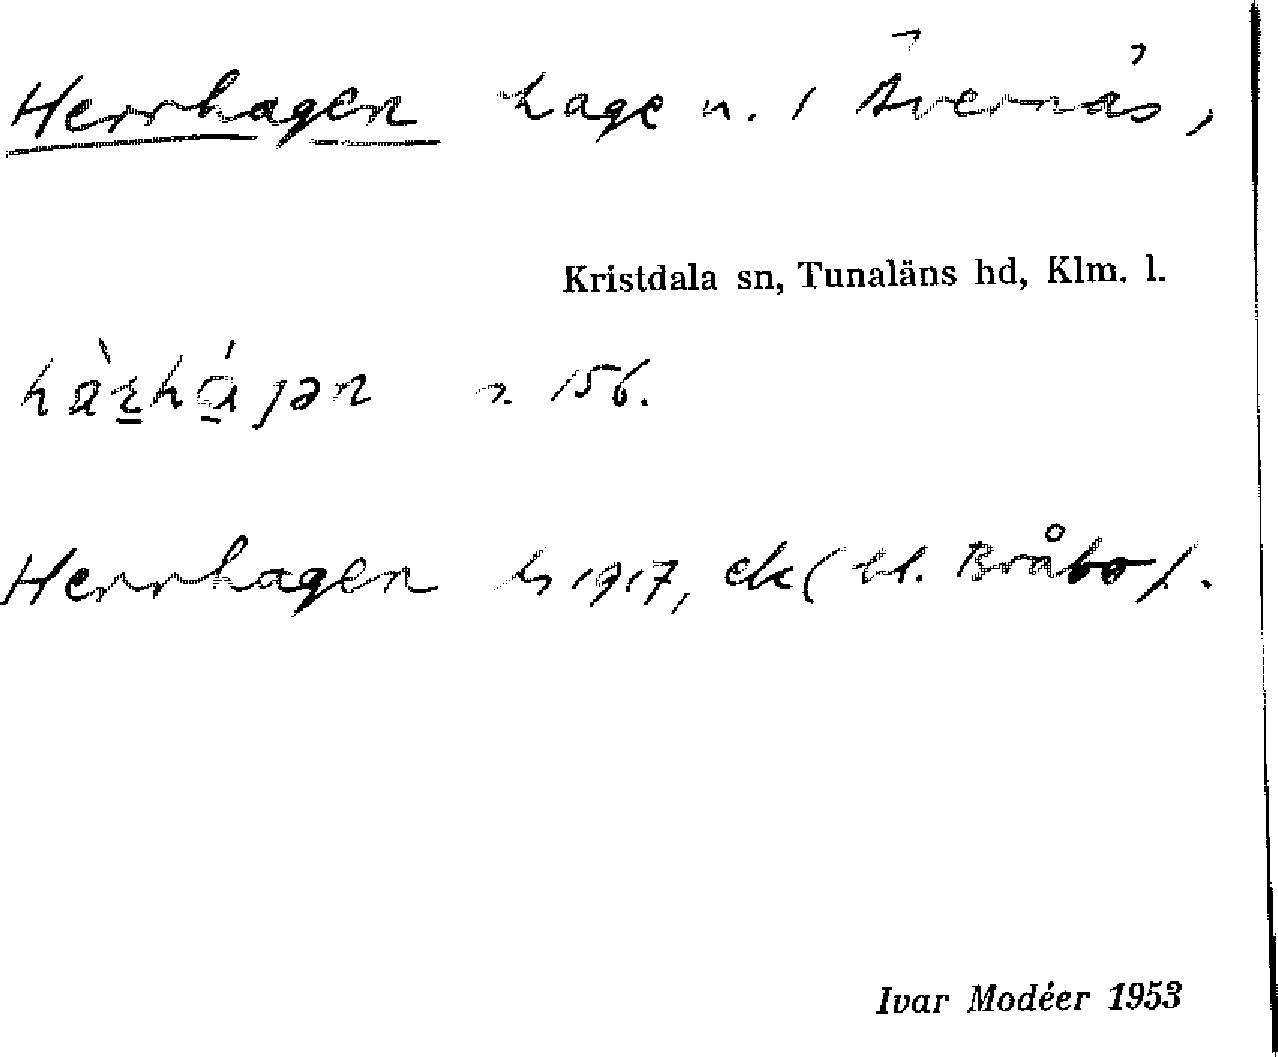 Herrhagen hage n. i Ävernäs,
Kristdala sn, Tunaläns hd, Klm. l.
n 156.
Herrhagen 1917, ek( bl. Bråbo).
Ivar Modéer 1953